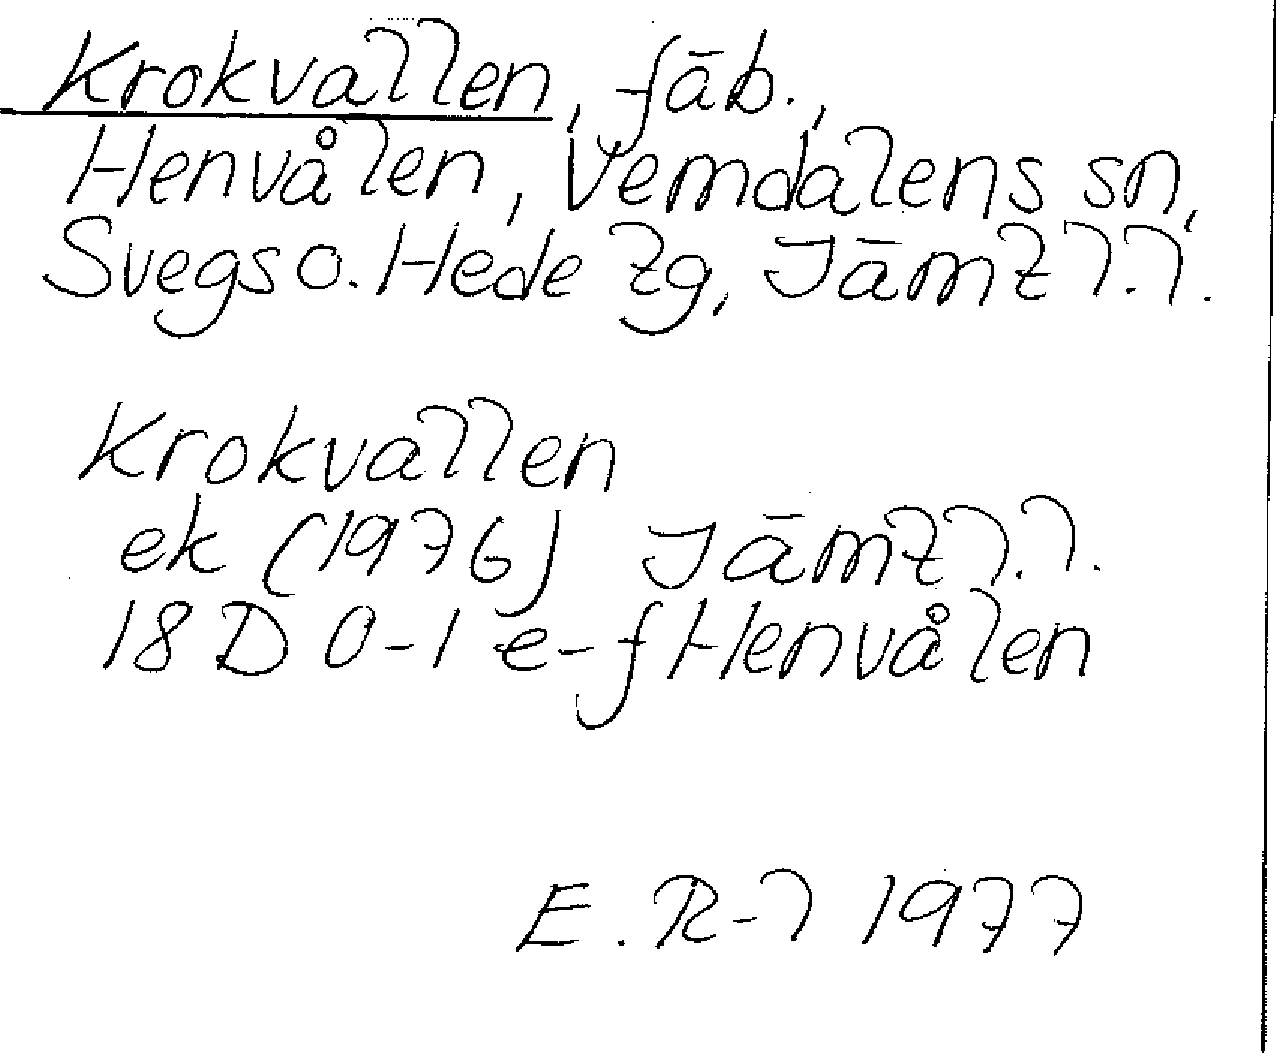 Krokvallen, fäb.,
Henvålen, Vemdalens sn,
Svegs o. Hede tg, Jämtl.l.
Krokvallen
ek (1976) Jämtl.l.
18D 0-1 e-f Henvålen
E.R-l 1977